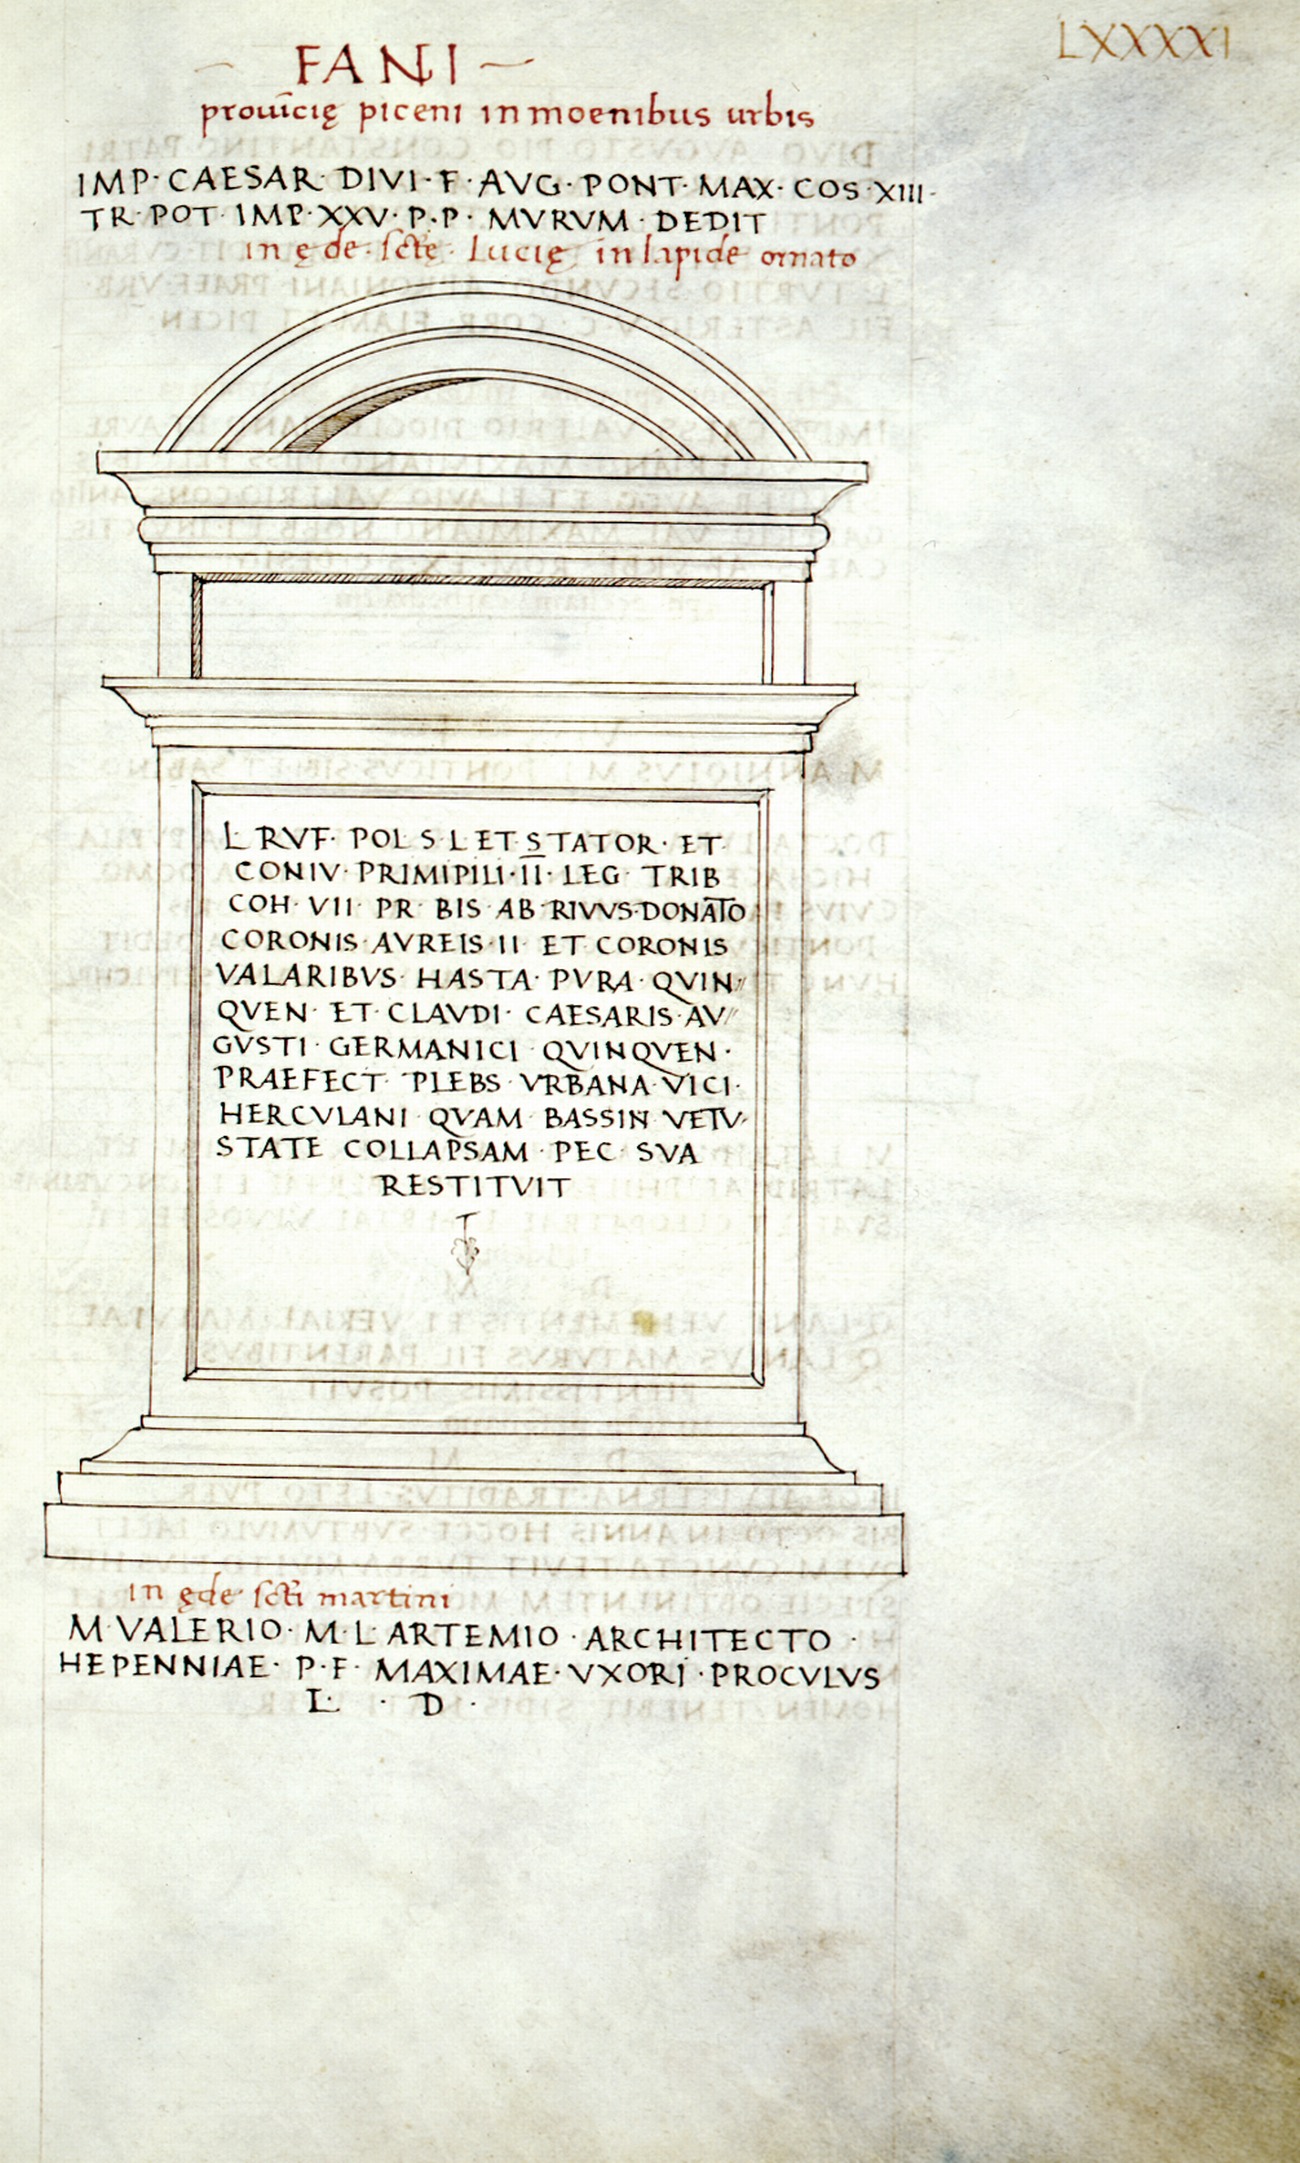 LXXXXI
FANI
prouīcię piceni in moenibus urbis
IMP· CAESAR· DIVI· F· AVG· PONT· MAX· COS·XIII·
TR·POT·IMP·XXV·P·P· MVRVM·DEDIT
in ęde·sctę· Lucię in lapide ornato
L RVF· POL S·L ET STATOR· ET·
CONIV·PRIMIPILI·II· LEG· TRIB
COH· VII PR BIS AB RIVVS·DONATO
CORONIS AVREIS·II ET CORONIS
VALARIBVS· HASTA· PVRA·QVIN//
QVEN· ET·CLAVDI· CAESARIS·AV//
GVSTI·GERMANICI·QVINQVEN·
PRAEFECT PLEBS·VRBANA·VICI·
HERCVLANI QVAM BASSIN VETV·
STATE COLLAPSAM·PEC SVA
RESTITVIT
in ęde scti martini
M·VALERIO·M·L ARTEMIO·ARCHITECTO·
HEPENNIAE· P·F· MAXIMAE·VXORI·PROCVLVS
L· · D ·